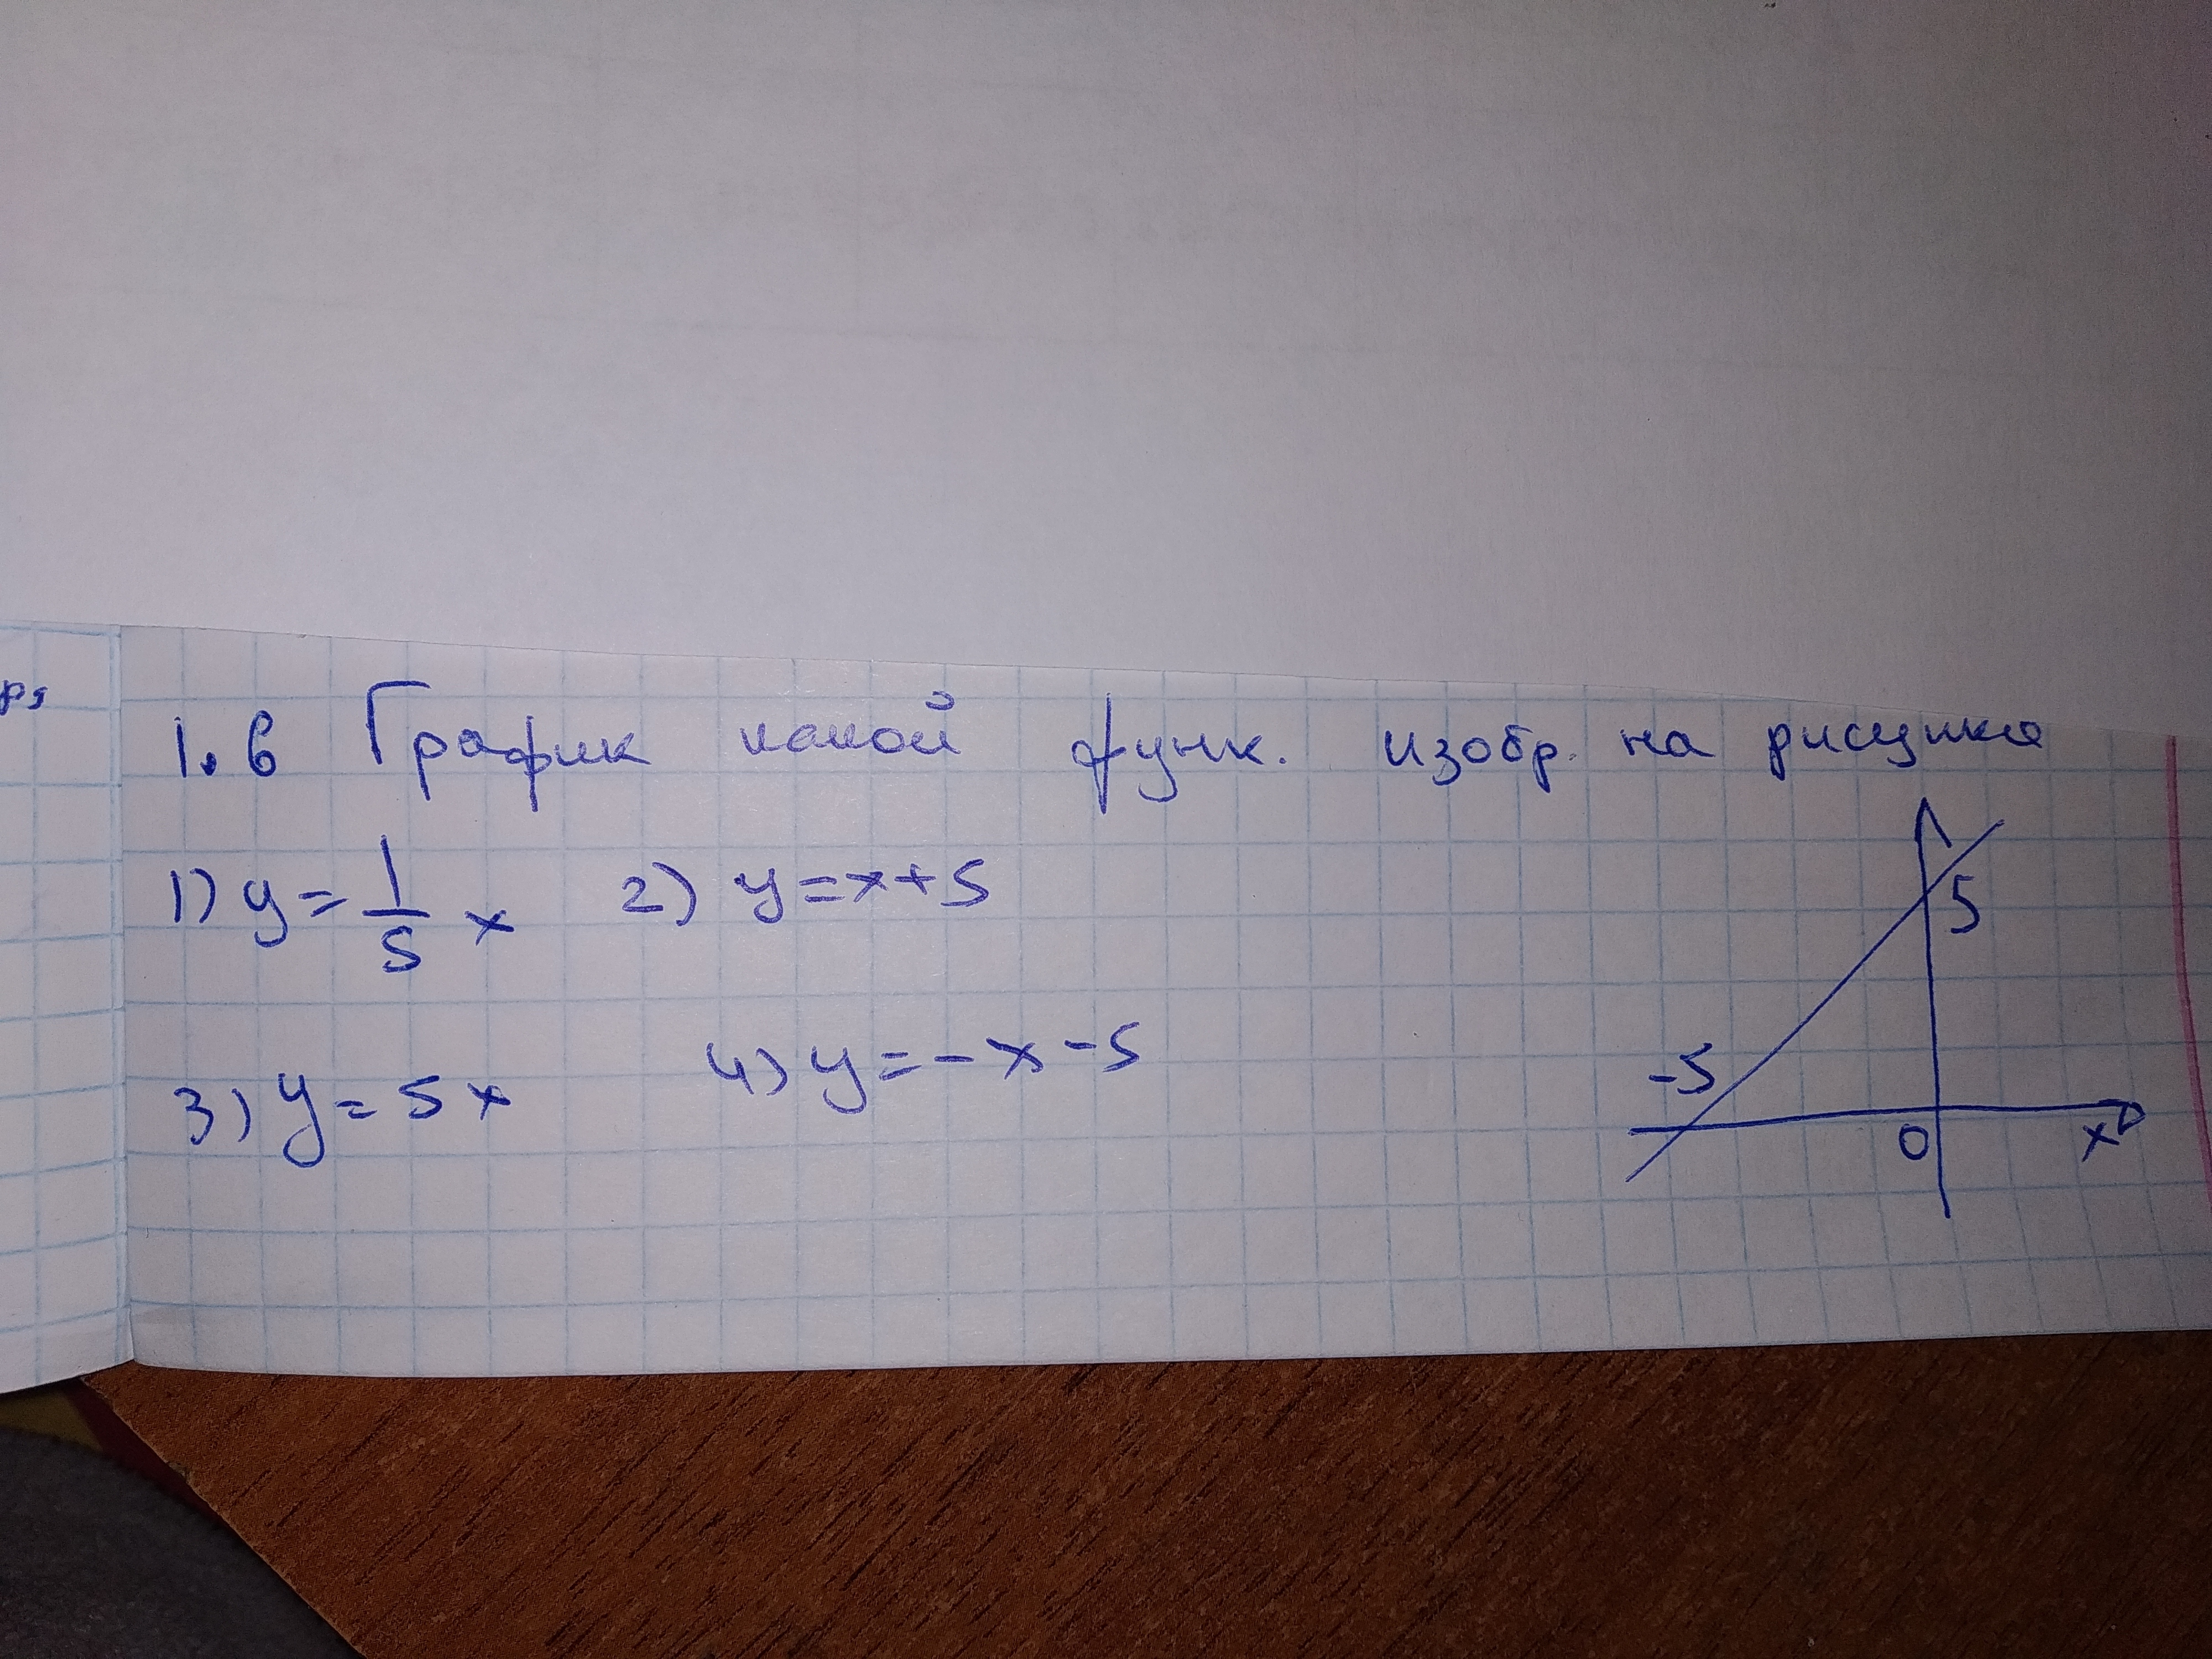 р,
1.6 График какой функ. изобр. на рисунке
1) y = 1/5 x 2) y = x + 5
3) y = 5x 4) y = -x - 5
5
-5
0
x